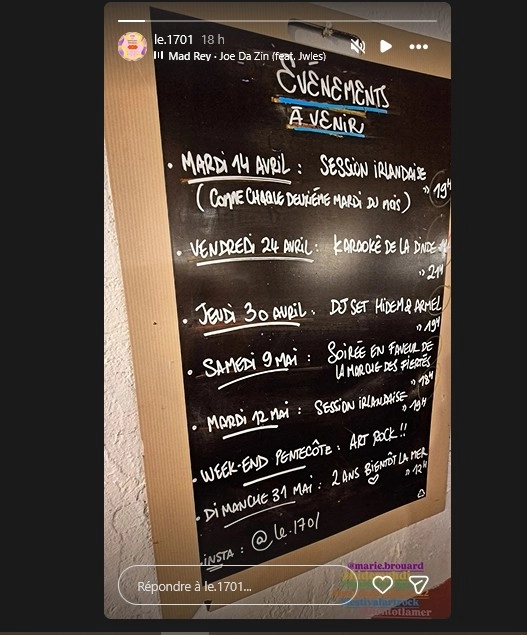 le.1701 18 h
Mad Rey · Joe Da Zin (feat. Jwles)
ÉVÉNEMENTS
À VENIR
• MARDI 14 AVRIL : SESSION IRLANDAISE
" 19H
(COMME CHAQUE DEUXIÈME MARDI DU MOIS)
• VENDREDI 24 AVRIL : KARAOKÉ DE LA DINDE
" 21H
• JEUDI 30 AVRIL : DJ SET HIDEM & ARMEL
" 19H
• SAMEDI 9 MAI : SOIRÉE EN FAVEUR DE
LA MARCHE DES FIERTÉS
" 18H
• MARDI 12 MAI : SESSION IRLANDAISE
" 19H
• WEEK-END PENTECÔTE : ART ROCK !!
• DIMANCHE 31 MAI : 2 ANS BIENTÔT LA MER
" 12H
INSTA : @le.1701
@marie.brouard
Répondre à le.1701...